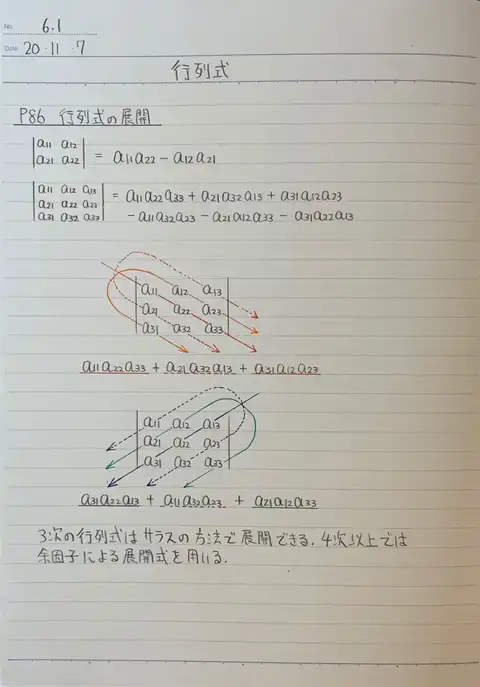 No. 6.1
Date 20・11・7
行列式
P86 行列式の展開
|a₁₁ a₁₂|
|a₂₁ a₂₂| = a₁₁a₂₂ − a₁₂a₂₁
|a₁₁ a₁₂ a₁₃| = a₁₁a₂₂a₃₃ + a₂₁a₃₂a₁₃ + a₃₁a₁₂a₂₃
|a₂₁ a₂₂ a₂₃| − a₁₁a₃₂a₂₃ − a₂₁a₁₂a₃₃ − a₃₁a₂₂a₁₃
|a₃₁ a₃₂ a₃₃|
|a₁₁ a₁₂ a₁₃|
|a₂₁ a₂₂ a₂₃|
|a₃₁ a₃₂ a₃₃|
a₁₁a₂₂a₃₃ + a₂₁a₃₂a₁₃ + a₃₁a₁₂a₂₃
|a₁₁ a₁₂ a₁₃|
|a₂₁ a₂₂ a₂₃|
|a₃₁ a₃₂ a₃₃|
a₃₁a₂₂a₁₃ + a₁₁a₃₂a₂₃ + a₂₁a₁₂a₃₃
3次の行列式はサラスの方法で展開できる. 4次以上では
余因子による展開式を用いる.